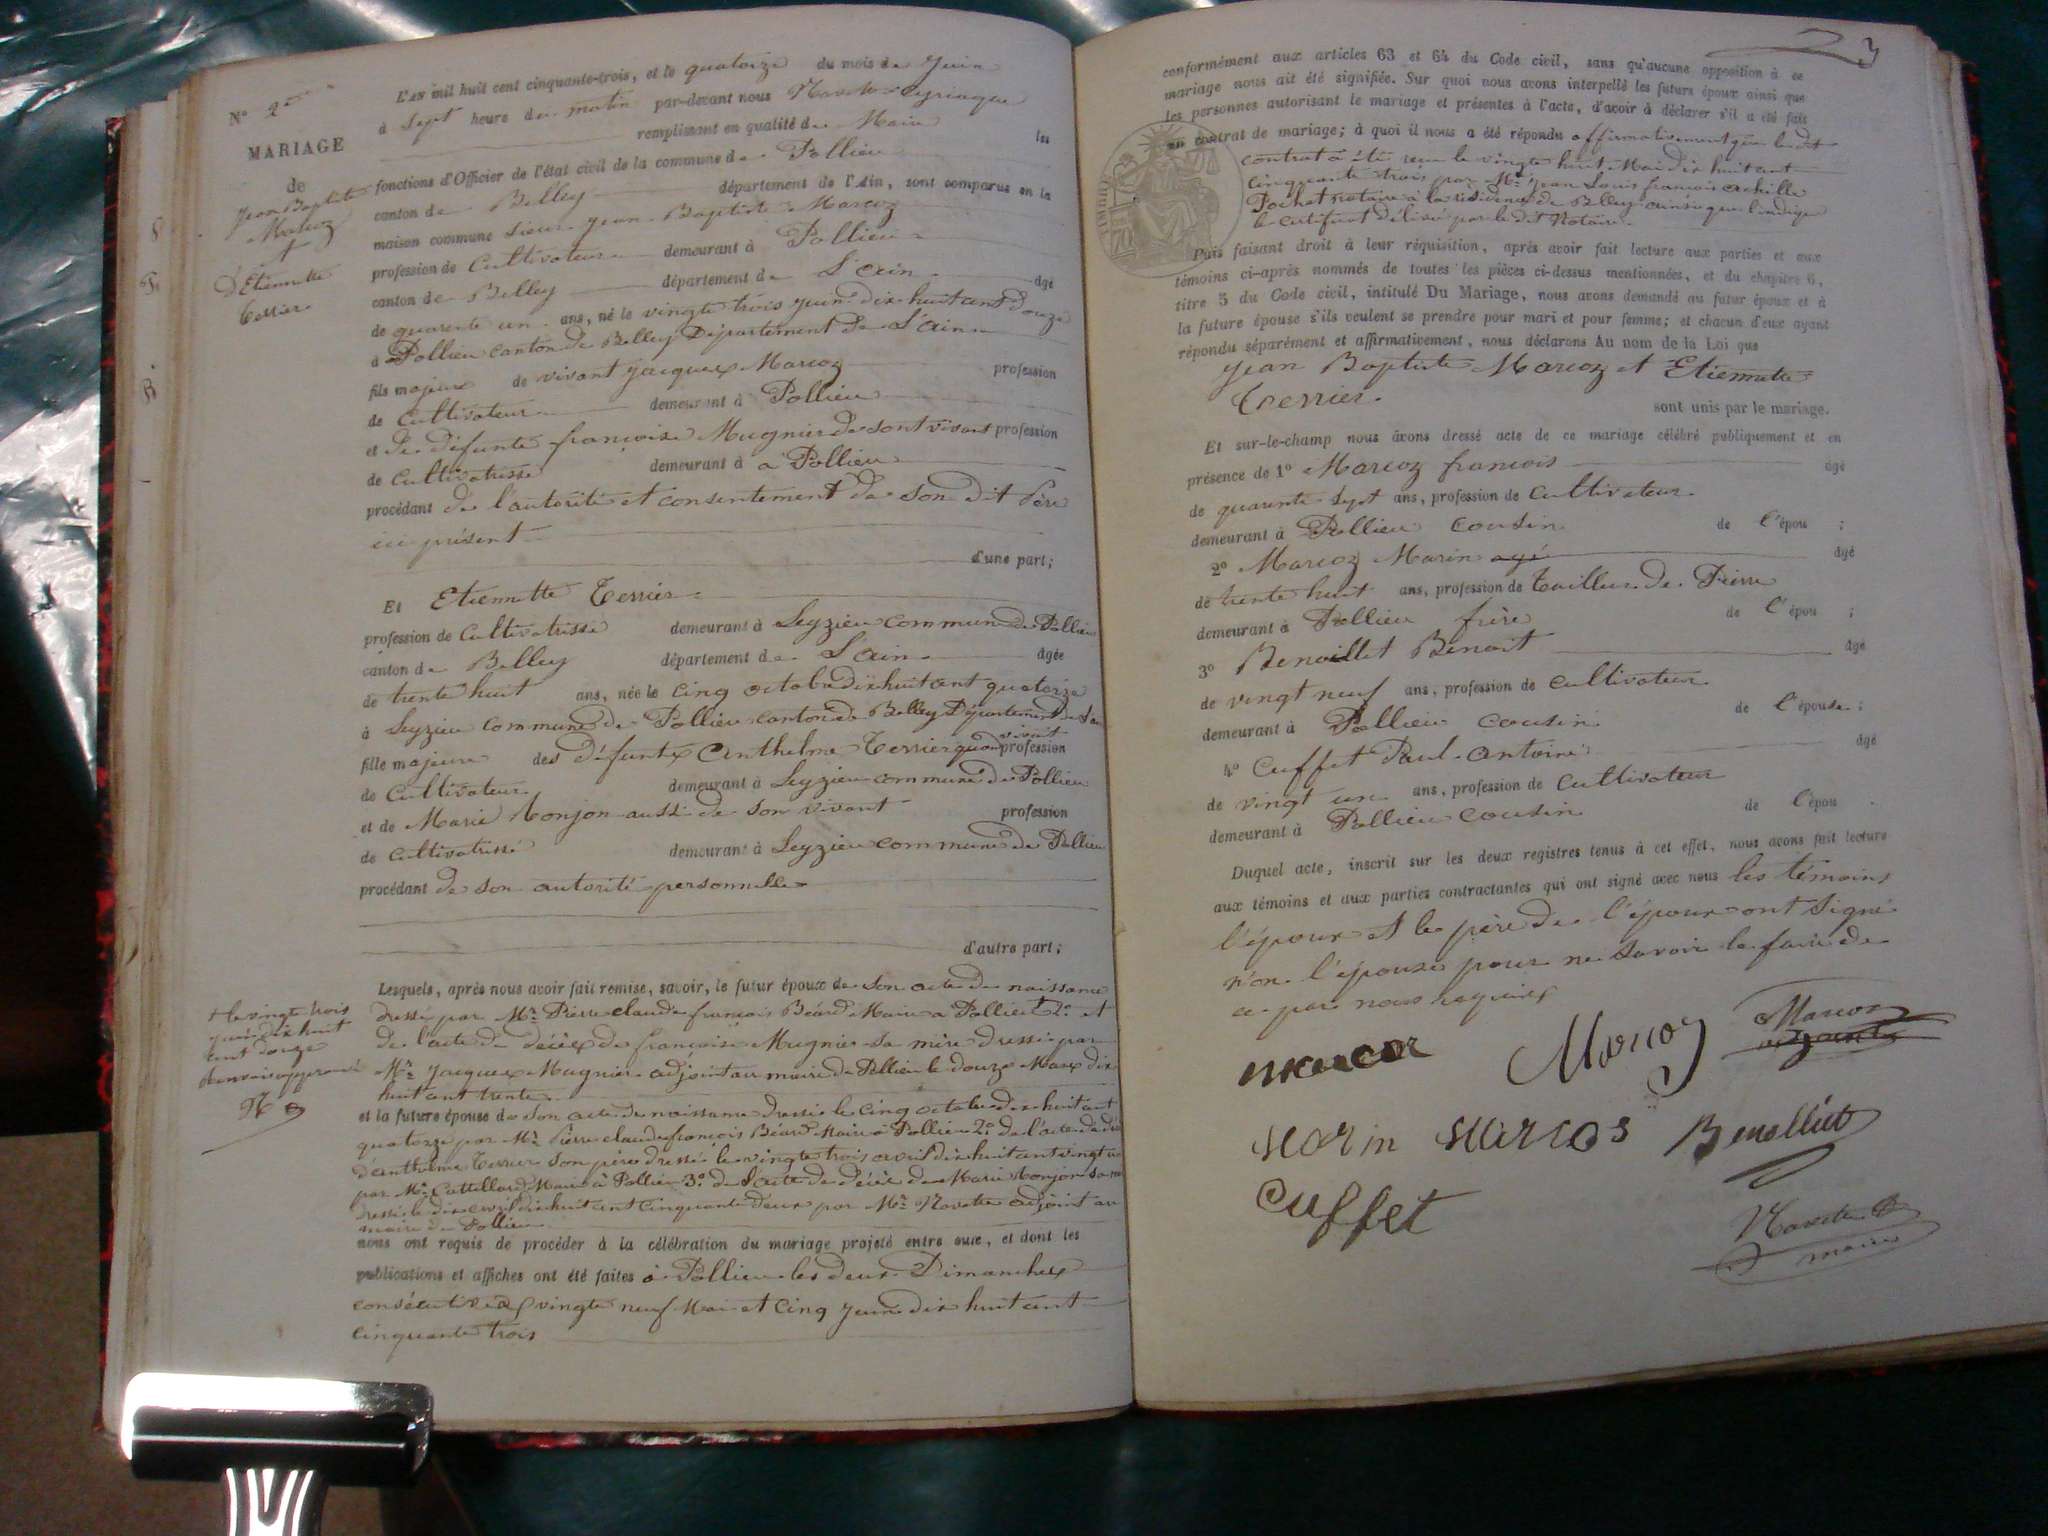 N° 2
MARIAGE
de
Jean Baptiste
Marcoz
et
D'Etiennette
Terrier
L'AN mil huit cent cinquante-trois, et le quatorze du mois de Juin
à sept heure du matin par-devant nous Navette Cyriaque
remplissant en qualité de Maire les
fonctions d'Officier de l'état civil de la commune de Pollieu
canton de Belley département de l'Ain, sont comparus en la
maison commune sieur Jean Baptiste Marcoz
profession de Cultivateur demeurant à Pollieu
canton de Belley département de L'ain âgé
de quarente un ans, né le vingte trois juin dix huit cent douze
à Pollieu canton de Belley Département de L'ain
fils majeur de vivant Jacques Marcoz profession
de Cultivateur demeurant à Pollieu
et de défunte françoise Mugnier de sont vivant profession
de Cultivatrisse demeurant à à Pollieu
procédant de l'autorité et consentement de son dit Père
ici présent
d'une part;
Et Etiennette Terrier
profession de Cultivatrisse demeurant à Leyzieu commune de Pollieu
canton de Belley département de L'ain âgée
de trente huit ans, née le cinq octobre dix huit cent quatorze
à Leyzieu commune de Pollieu canton de Belley Département de L'ain
fille majeure des défunts Anthelme Terrier quand vivant profession
de Cultivateur demeurant à Leyzieu commune de Pollieu
et de Marie Monjon aussi de son vivant profession
de Cultivatrisse demeurant à Leyzieu commune de Pollieu
procédant de son autorité personnelle
d'autre part;
Lesquels, après nous avoir fait remise, savoir, le futur époux de son acte de naissance
dressé par Mr Pierre claude françois Béard Maire à Pollieu + 2° et
de l'acte de décès de françoise Mugnier sa mère dressé par
Mr Jacques Mugnier adjoint au maire de Pollieu le douze Mars dix
huit cent trente
+ le vingte trois
juin dix huit
cent douze
renvoi approuvé
et la future épouse de son acte de naissance dressé le cinq octobre dix huit cent
quatorze par Mr Pierre claude françois Béard Maire à Pollieu 2° de l'acte de décès
d'Anthelme Terrier son père dressé le vingte trois avril dix huit cent vingt
par Mr Catillard Maire à Pollieu 3° de l'acte de décès de Marie Monjon sa mère
dressé le dix avril dix huit cent cinquante deux par Mr Navette adjoint au
maire de Pollieu
nous ont requis de procéder à la célébration du mariage projeté entre eux, et dont les
publications et affiches ont été faites à Pollieu les deux Dimanches
consécutives vingte neuf Mai et cinq Juin dix huit cent
cinquante trois
3
conformément aux articles 63 et 64 du Code civil, sans qu'aucune opposition à ce
mariage nous ait été signifiée. Sur quoi nous avons interpellé les futurs époux ainsi que
les personnes autorisant le mariage et présentes à l'acte, d'avoir à déclarer s'il a été fait
un contrat de mariage; à quoi il nous a été répondu affirmativement que le dit
contrat à été reçu le vingte huit Mai dix huit cent
cinquante trois par Mr Jean Louis françois achille
Pochet notaire à la résidence de Belley ainsi que l'indique
le certificat délivré par le dit Notaire.
TIMBRE
Puis faisant droit à leur réquisition, après avoir fait lecture aux parties et aux
témoins ci-après nommés de toutes les pièces ci-dessus mentionnées, et du chapitre 6,
titre 5 du Code civil, intitulé Du Mariage, nous avons demandé au futur époux et à
la future épouse s'ils veulent se prendre pour mari et pour femme; et chacun d'eux ayant
répondu séparément et affirmativement, nous déclarons Au nom de la Loi que
Jean Baptiste Marcoz et Etiennette
Terrier.
sont unis par le mariage.
Et sur-le-champ nous avons dressé acte de ce mariage célébré publiquement et en
présence de 1° Marcoz francois âgé
de quarente sept ans, profession de Cultivateur
demeurant à Pollieu cousin de l'épou ;
2° Marcoz Marin agé âgé
de trente huit ans, profession de Tailleur de Pierre
demeurant à Pollieu frère de l'épou ;
3° Benoillet Benoit âgé
de vingt neuf ans, profession de cultivateur
demeurant à Pollieu cousin de l'épouse ;
4° Cuffet Paul antoine âgé
de vingt un ans, profession de Cultivateur
demeurant à Pollieu cousin de l'épou .
Duquel acte, inscrit sur les deux registres tenus à cet effet, nous avons fait lecture
aux témoins et aux parties contractantes qui ont signé avec nous les témoins
l'époux et le père de l'époux ont signé
non l'épouse pour ne savoir le faire de
ce par nous requis
marcoz Marcoz Marcoz
Marin Marcos Benolliet
Cuffet
Navette
maire